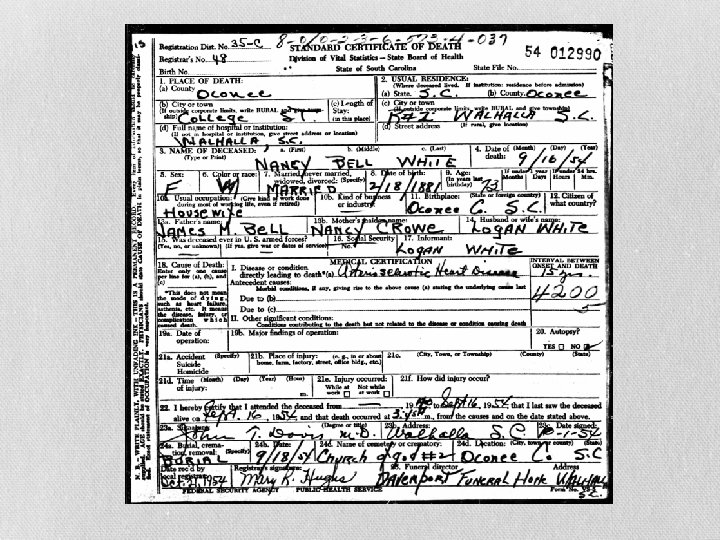 8-0/0-2-3-6-573-4-037
Registration Dist. No. 35-C STANDARD CERTIFICATE OF DEATH
Registrar's No. 48 Division of Vital Statistics—State Board of Health 54 012990
Birth No. State of South Carolina State File No.
1. PLACE OF DEATH: 2. USUAL RESIDENCE:
(a) County (Where deceased lived. If institution: residence before admission)
Oconee (a) State. S.C. (b) County. Oconee
(b) City or town (c) Length of (c) City or town
(If outside corporate limits, write RURAL Stay: (If outside corporate limits, write RURAL and give township)
College ST. (in this place) R#2 WALHALLA S.C.
(d) Full name of hospital or institution: (d) Street address (If rural, give location)
(If not in hospital or institution, give street address or location)
WALHALLA S.C.
3. NAME OF DECEASED: a. (First) b. (Middle) c. (Last) 4. Date of (Month) (Day) (Year)
(Type or Print) NANCY BELL WHITE death: 9/16/54
5. Sex: 6. Color or race: 7. Married, never married, 8. Date of birth: 9. Age: If under 1 year If under 24 hrs.
widowed, divorced: (Specify) (In years last birthday) Months Days Hours Min.
F W MARRIED 2/18/1881 73
10a. Usual occupation: (Give kind of work done 10b. Kind of business 11. Birthplace: (State or foreign country) 12. Citizen of
during most of working life, even if retired) or industry: what country?
Housewife Oconee Co. S.C.
13a. Father's name: 13b. Mother's maiden name: 14. Husband or wife's name:
JAMES M. BELL NANCY CROWE LOGAN WHITE
15. Was deceased ever in U. S. armed forces? 16. Social Security 17. Informant:
(Yes, no, or unknown) (If yes, give war or dates of service) No. LOGAN WHITE
MEDICAL CERTIFICATION INTERVAL BETWEEN
ONSET AND DEATH
18. Cause of Death: I. Disease or condition
Enter only one cause directly leading to death*(a) Arteriosclerotic Heart Disease 15 yrs.
per line for (a), (b), and (c) Antecedent causes:
Morbid conditions, if any, giving rise to the above cause (a) stating the underlying cause last
*This does not mean Due to (b) 4200
the mode of dying,
such as heart failure, Due to (c) 5
asthenia, etc. It means
the disease, injury, or II. Other significant conditions:
complication which Conditions contributing to the death but not related to the disease or condition causing death
caused death.
19a. Date of 19b. Major findings of operation: 20. Autopsy?
operation: YES NO
21a. Accident (Specify) 21b. Place of injury: (e. g., in or about 21c. (City, Town, or Township) (County) (State)
Suicide home, farm, factory, street, office bldg., etc.)
Homicide
21d. Time (Month) (Day) (Year) (Hour) 21e. Injury occurred: 21f. How did injury occur?
of injury: m. While at work Not while at work
22. I hereby certify that I attended the deceased from 19 to Sept 16, 1954, that I last saw the deceased
alive on Sept. 16, 1954, and that death occurred at m., from the causes and on the date stated above.
23a. Signature (Degree or title) 23b. Address: 23c. Date signed:
John T. Davis M.D. Walhalla S.C. 10-1-54
24a. Burial, crema- 24b. Date: 24c. Name of cemetery or crematory: 24d. Location: (City, town, or county) (State)
tion, removal: (Specify)
BURIAL 9/18/54 Church of god #2 Oconee Co. S.C
Date rec'd by Registrar's signature: 25. Funeral director Address
local registrar:
Oct. 21, 1954 Mary K. Hughs DAVENPORT FUNERAL HOME WALHALLA S.C.
FEDERAL SECURITY AGENCY PUBLIC HEALTH SERVICE Form No.